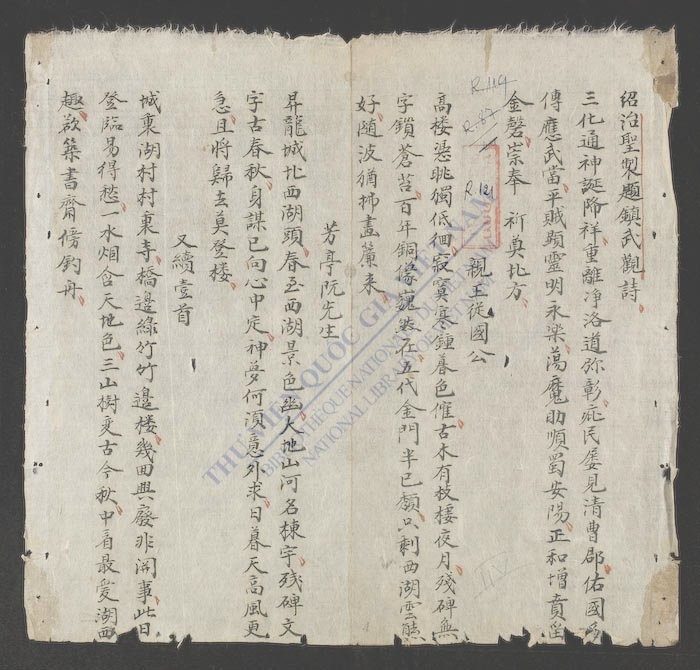 紹治聖製題鎮武觀詩
三化通神誕降祥重離净洛道弥彰庇民屡見清曹郡佑國
傳應武當平賊顯靈明永楽蕩魔助順蜀安陽正和增賁
金磬崇奉祈奠北方
親王從國公
高楼憑眺獨低徊寂寞寒鍾暮色催古木有枝棲夜月残碑無
字鎖蒼苔百年銅像巍然在五代金門半已頹只剩西湖雲
好随波猶拂畫簾来
芳亭阮先生
昇龍城北西湖頭春至西湖景色幽大地山河名棟宇残碑文
字古春秋身謀已向心中定神夢何須意外求日暮天高風更
急且將歸去莫登楼
又續壹首
城裏湖村村裏寺橋邊綠竹竹邊楼幾回興廢非関事此日
登臨易得愁一水烟含天地色三山樹变古今秋中看最愛湖西
趣欲築書齋傍釣舟
R.114
R.87
R.121
THƯ VIỆN QUỐC GIA VIỆT NAM
BIBLIOTHÈQUE NATIONALE DU VIETNAM
NATIONAL LIBRARY OF VIETNAM